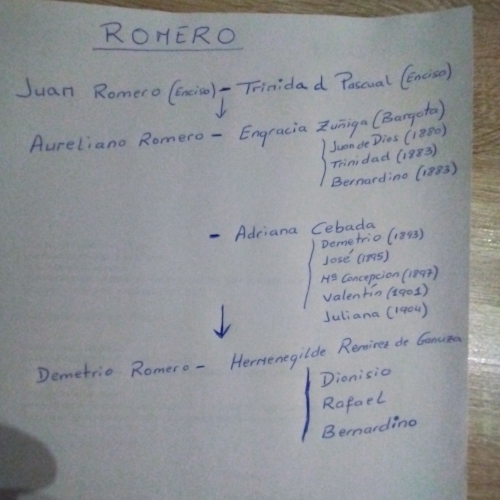 ROMERO
Juan Romero (Enciso) - Trinidad Pascual (Enciso)
Aureliano Romero - Engracia Zuñiga (Bargota)
Juan de Dios (1880)
Trinidad (1883)
Bernardino (1883)
- Adriana Cebada
Demetrio (1893)
José (1895)
Mª Concepcion (1897)
Valentín (1901)
Juliana (1904)
Demetrio Romero - Hermenegilde Remirez de Ganuza
Dionisio
Rafael
Bernardino